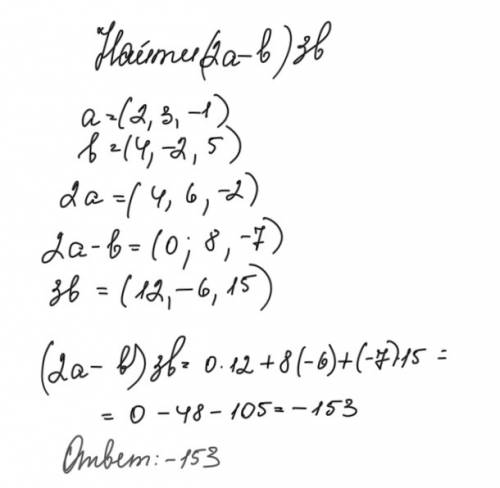 Найти (2a-b)3b
a=(2,3,-1)
b=(4,-2,5)
2a=(4,6,-2)
2a-b=(0;8,-7)
3b=(12,-6,15)
(2a-b)3b=0·12+8(-6)+(-7)15=
=0-48-105=-153
Ответ:-153